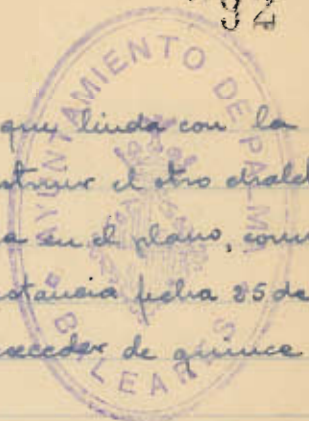 92
AYUNTAMIENTO DE PALMA
BALEARES
que linda con la
struir el otro chalet
a en el plano, com
stancia fecha 25 de
xceder de quince